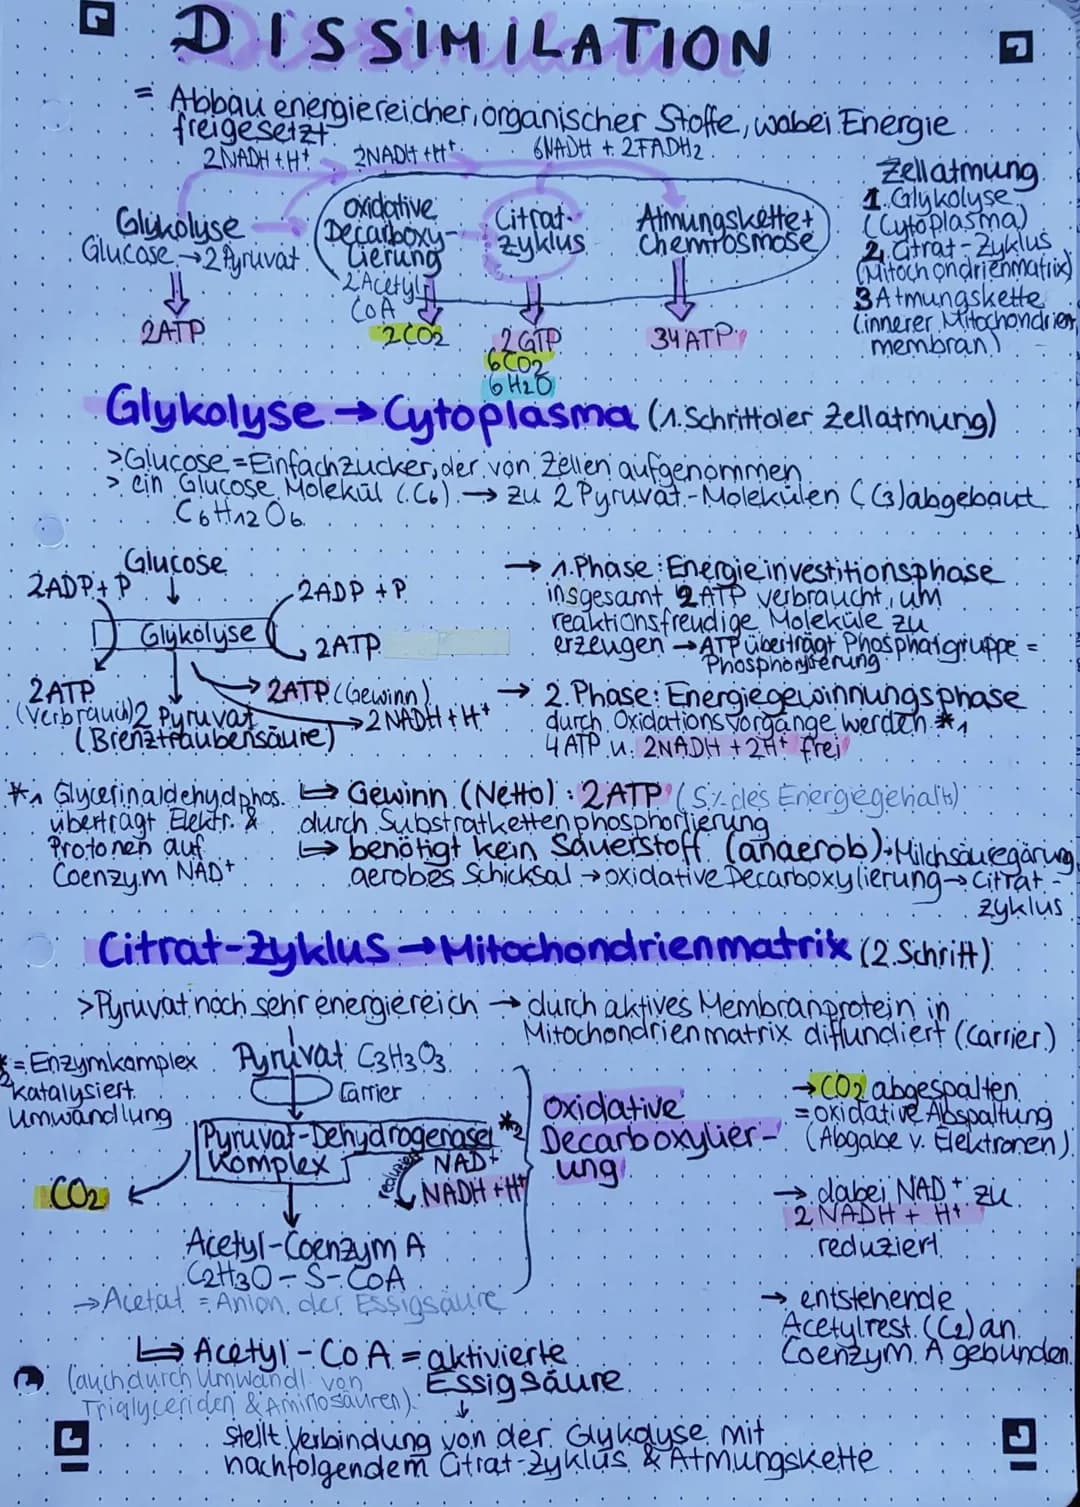 DISSIMILATION
= Abbau energiereicher, organischer Stoffe, wobei Energie
freigesetzt
2NADH + H⁺ 2NADH + H⁺ 6NADH + 2FADH2
Glykolyse
Glucose → 2 Pyruvat
2ATP
oxidative
Decarboxy-
lierung
2 Acetyl
CoA
2CO2
Citrat-
zyklus
2GTP
6CO2
6H2O
Atmungskette +
Chemiosmose
34 ATP
Zellatmung
1. Glykolyse
(Cytoplasma)
2. Citrat-Zyklus
(Mitochondrienmatrix)
3 Atmungskette
(innerer Mitochondrien
membran)
Glykolyse → Cytoplasma (1. Schritt der Zellatmung)
> Glucose = Einfachzucker, der von Zellen aufgenommen
> ein Glucose Molekül (C6) → zu 2 Pyruvat-Molekülen (C3) abgebaut
C6H12O6
Glucose
2ADP + P
2ADP + P
Glykolyse
2ATP
2ATP
(Verbrauch)
2ATP (Gewinn)
2 NADH + H⁺
2 Pyruvat
(Brenztraubensäure)
→ 1. Phase: Energieinvestitionsphase
insgesamt 2 ATP verbraucht, um
reaktionsfreudige Moleküle zu
erzeugen → ATP überträgt Phosphatgruppe =
Phosphorylierung
→ 2. Phase: Energiegewinnungsphase
durch Oxidationsvorgänge werden *1
4 ATP u. 2NADH + 2H⁺ frei
*1 Glycerinaldehydphos.
überträgt Elektr. &
Protonen auf
Coenzym NAD⁺
↳ Gewinn (Netto): 2ATP (5% des Energiegehalts)
durch Substratkettenphosphorlierung
↳ benötigt kein Sauerstoff (anaerob) → Milchsäuregärung
aerobes Schicksal → oxidative Decarboxylierung → Citrat-
zyklus
Citrat-Zyklus → Mitochondrienmatrix (2. Schritt)
> Pyruvat noch sehr energiereich → durch aktives Membranprotein in
Mitochondrienmatrix diffundiert (Carrier)
*2 = Enzymkomplex
katalysiert
Umwandlung
Pyruvat C3H3O3
Carrier
Pyruvat-Dehydrogenase *2
Komplex
reduziert
NAD⁺
NADH + H⁺
CO2
Acetyl-Coenzym A
C2H3O-S-CoA
→ Acetat = Anion der Essigsäure
Oxidative
Decarboxylier-
ung
→ CO2 abgespalten
= oxidative Abspaltung
(Abgabe v. Elektronen)
→ dabei NAD⁺ zu
2 NADH + H⁺
reduziert
→ entstehende
Acetylrest (C2) an
Coenzym A gebunden
↳ Acetyl-CoA = aktivierte
Essigsäure
(auch durch Umwandl. von
Triglyceriden & Aminosäuren)
↓
stellt Verbindung von der Glykolyse mit
nachfolgendem Citrat-Zyklus & Atmungskette